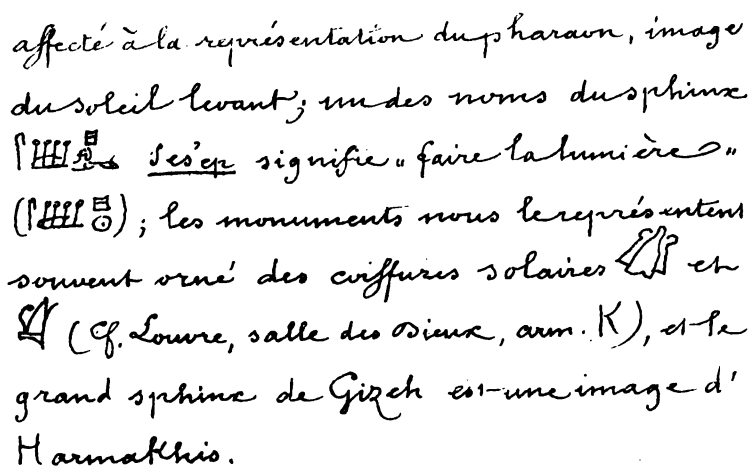 affecté à la représentation du pharaon, image
du soleil levant; un des noms du sphinx
Ses'ep signifie „ faire la lumière „
( ); les monuments nous le représentent
souvent orné des coiffures solaires et
(Cf. Louvre, salle des Dieux, arm. K), et le
grand sphinx de Gizeh est une image d'
Harmakhis.